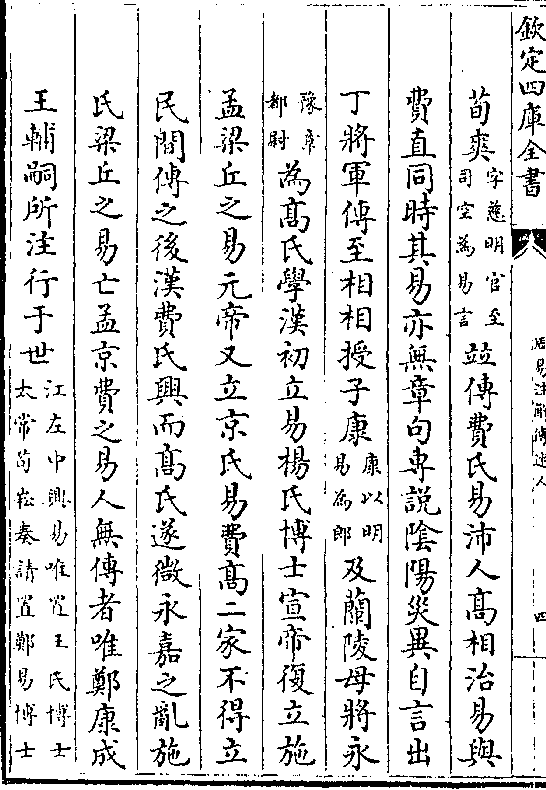 欽定四庫全書
周易注解傳述人
四
荀爽字慈明官至司空為易言並傳費氏易沛人髙相治易與
費直同時其易亦無章句專說隂陽災異自言出
丁將軍傳至相相授子康康以明易為郎及蘭陵毋將永
豫章都尉為髙氏學漢初立易楊氏博士宣帝復立施
孟梁丘之易元帝又立京氏易費髙二家不得立
民間傳之後漢費氏興而髙氏遂微永嘉之亂施
氏梁丘之易亡孟京費之易人無傳者唯鄭康成
王輔嗣所注行于世江左中興易唯置王氏博士太常荀崧奏請置鄭易博士